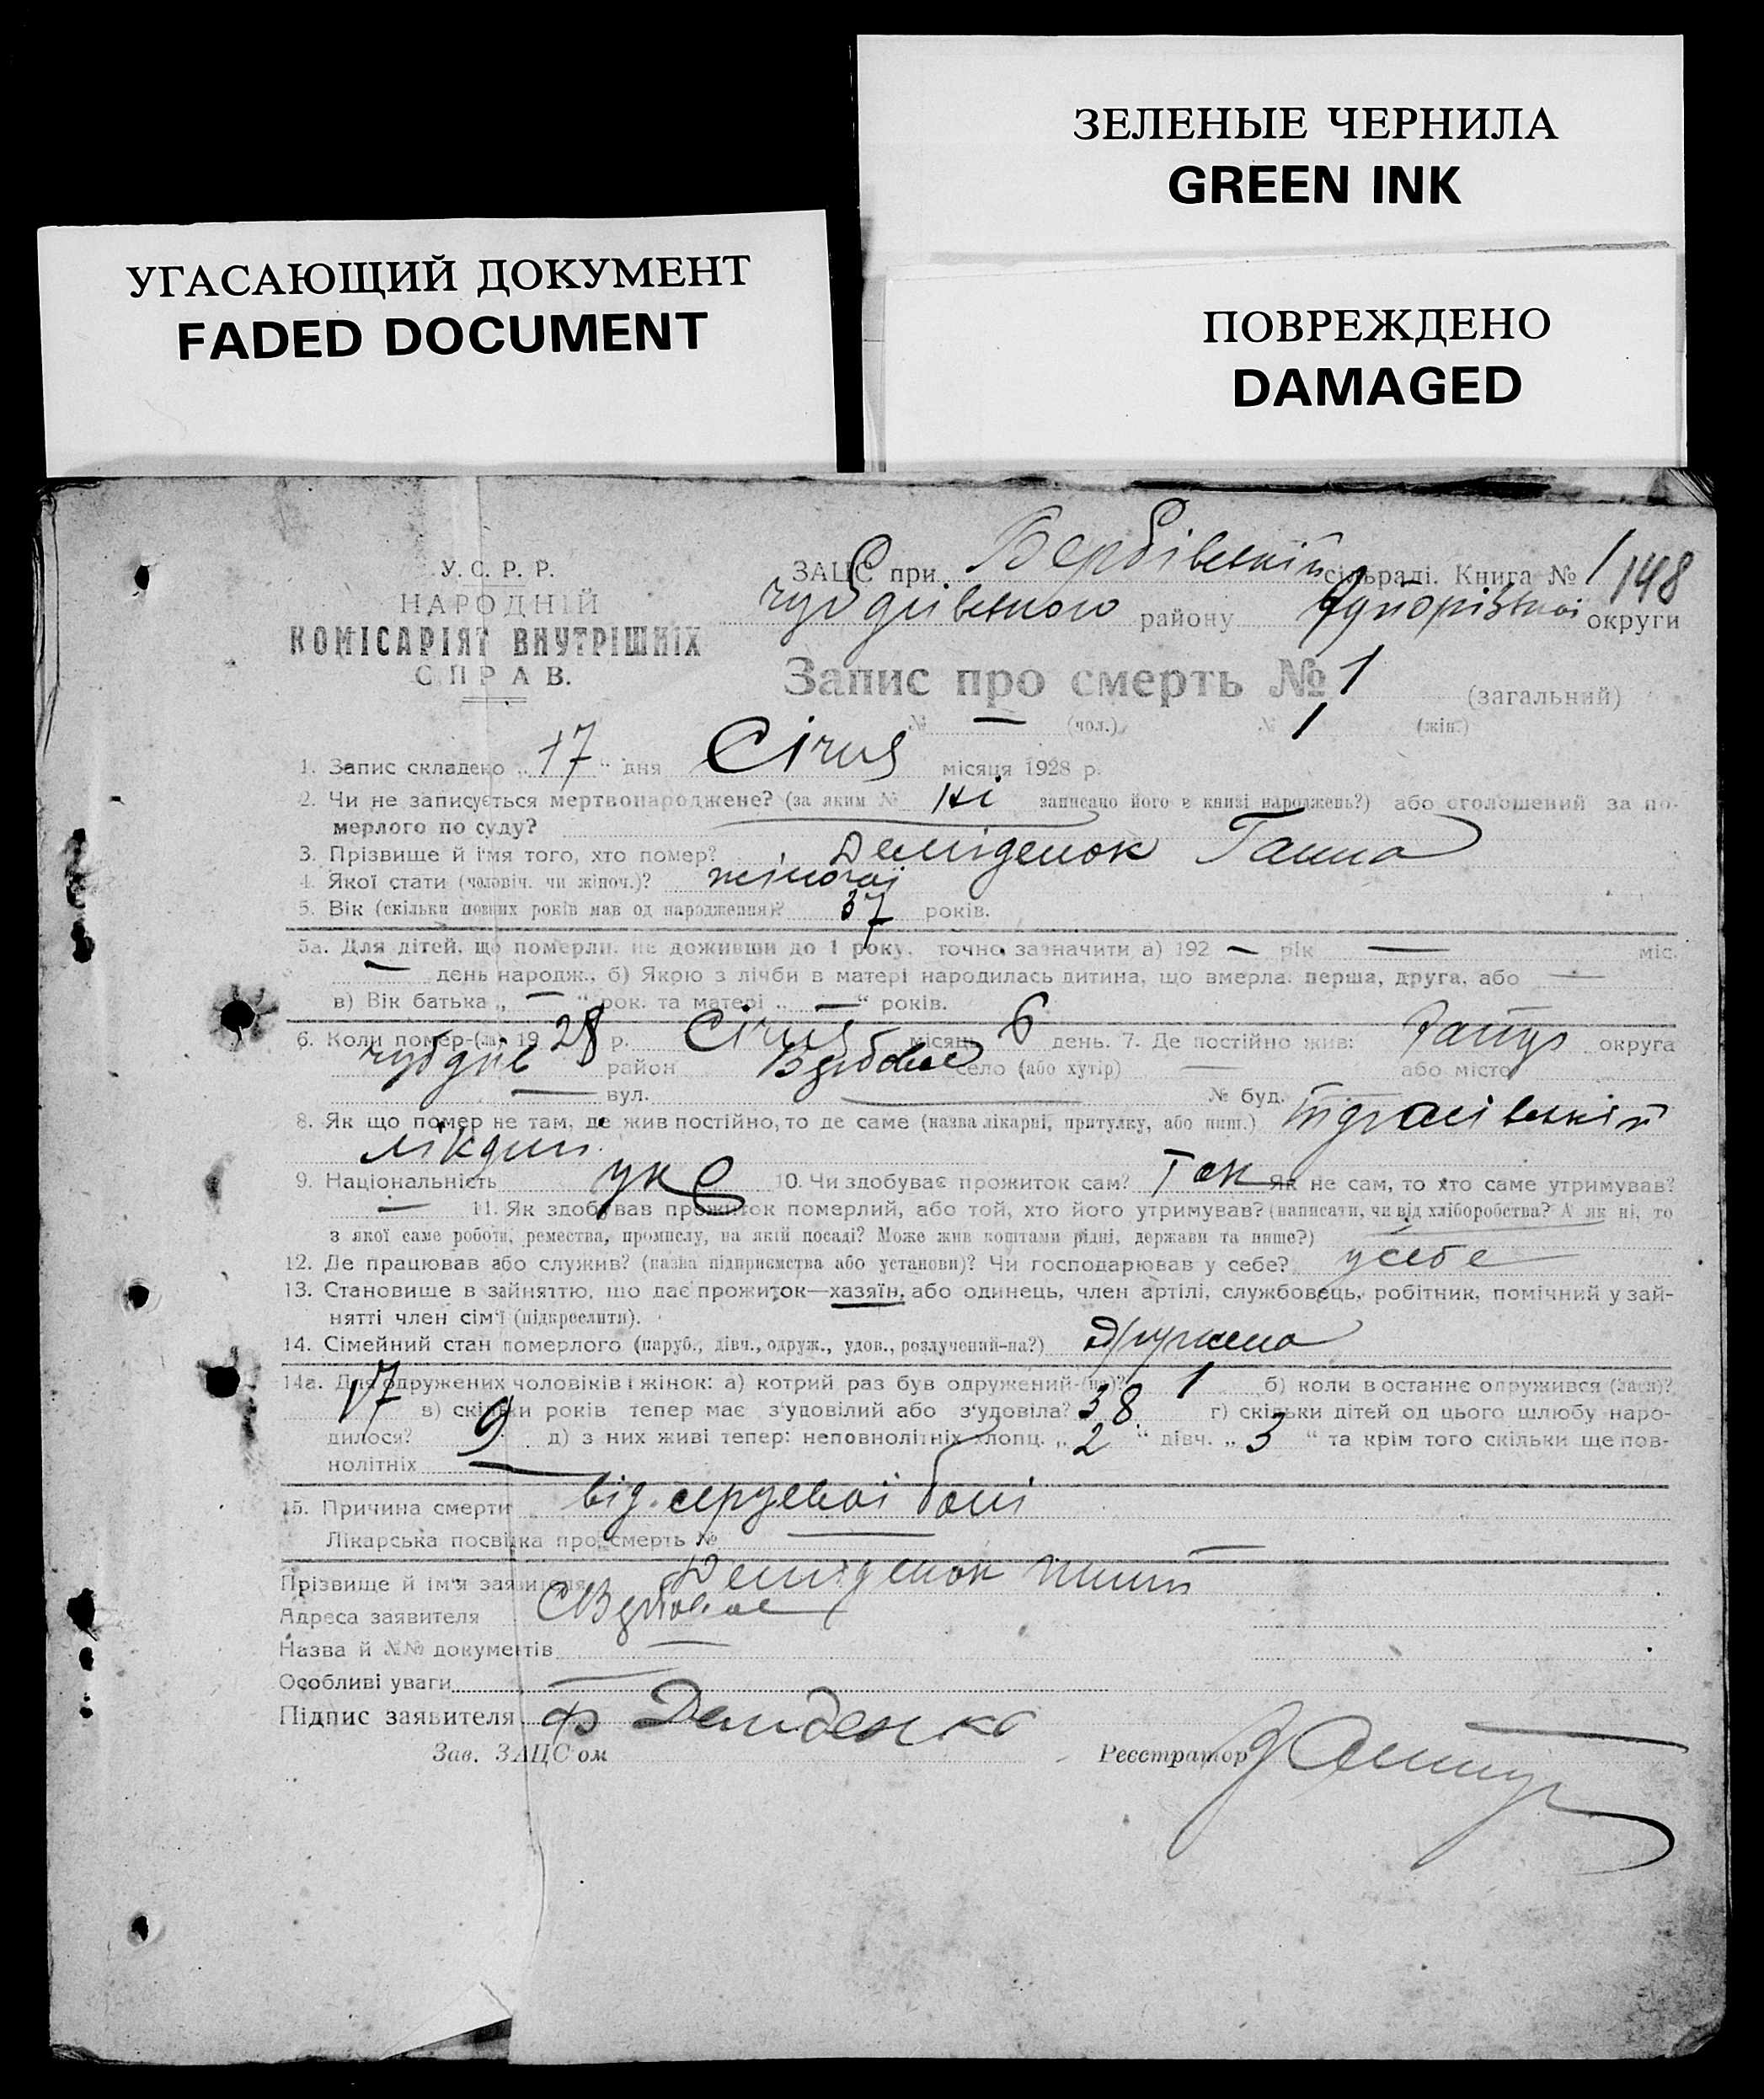 ЗЕЛЕНЫЕ ЧЕРНИЛА
GREEN INK
УГАСАЮЩИЙ ДОКУМЕНТ
FADED DOCUMENT
ПОВРЕЖДЕНО
DAMAGED
У. С. Р. Р.
НАРОДНІЙ
КОМІСАРІЯТ ВНУТРІШНІХ
СПРАВ.
ЗАЦС при Вербівській сільраді. Книга № 1 148
району округи
Запис про смерть № 1 (загальний)
№ — (чол.) № 1 (жін.)
1. Запис складено „17“ дня Січня місяця 1928 р.
2. Чи не записується мертвонароджене? (за яким № Ні записано його в книзі народжень?) або оголошений за по-
мерлого по суду?
3. Прізвище й ім'я того, хто помер? Деміденок Ганна
4. Якої стати (чоловіч. чи жіноч.)? жіночої
5. Вік (скільки повних років мав од народження)? 37 років.
5а. Для дітей, що померли, не доживши до 1 року, точно зазначити а) 192 — рік — міс.
— день народж., б) Якою з лічби в матері народилась дитина, що вмерла: перша, друга, або —
в) Вік батька „ — “ рок. та матері „ — “ років.
6. Коли помер-(ла) 1928 р. Січня місяць 6 день. 7. Де постійно жив: округа
район село (або хутір) — або місто
— вул. — № буд.
8. Як що помер не там, де жив постійно, то де саме (назва лікарні, притулку, або інш.)
9. Національність укр 10. Чи здобуває прожиток сам? Так Як не сам, то хто саме утримував?
— 11. Як здобував прожиток померлий, або той, хто його утримував? (написати, чи від хліборобства? А як ні, то
з якої саме роботи, ремества, промислу, на якій посаді? Може жив коштами рідні, держави та инше?)
12. Де працював або служив? (назва підприємства або установи)? Чи господарював у себе? у себе
13. Становище в зайняттю, що дає прожиток—хазяїн, або одинець, член артілі, службовець, робітник, помічний у зай-
нятті член сім'ї (підкреслити).
14. Сімейний стан померлого (паруб., дівч., одруж., удов., розлучений-на?)
14а. Для одружених чоловіків і жінок: а) котрий раз був одружений-(на)? 1 б) коли востаннє одружився (лася)?
17 в) скільки років тепер має з'удовілий або з'удовіла? 38. г) скільки дітей од цього шлюбу наро-
дилося? 9 д) з них живі тепер: неповнолітніх хлопц. „ 2 “ дівч. „ 3 “ та крім того скільки ще пов-
нолітніх —
15. Причина смерти від
Лікарська посвідка про смерть № —
Прізвище й ім'я заявителя Деміденок
Адреса заявителя
Назва й №№ документів —
Особливі уваги —
Підпис заявителя Ф Демиденко
Зав. ЗАЦС'ом Реєстратор